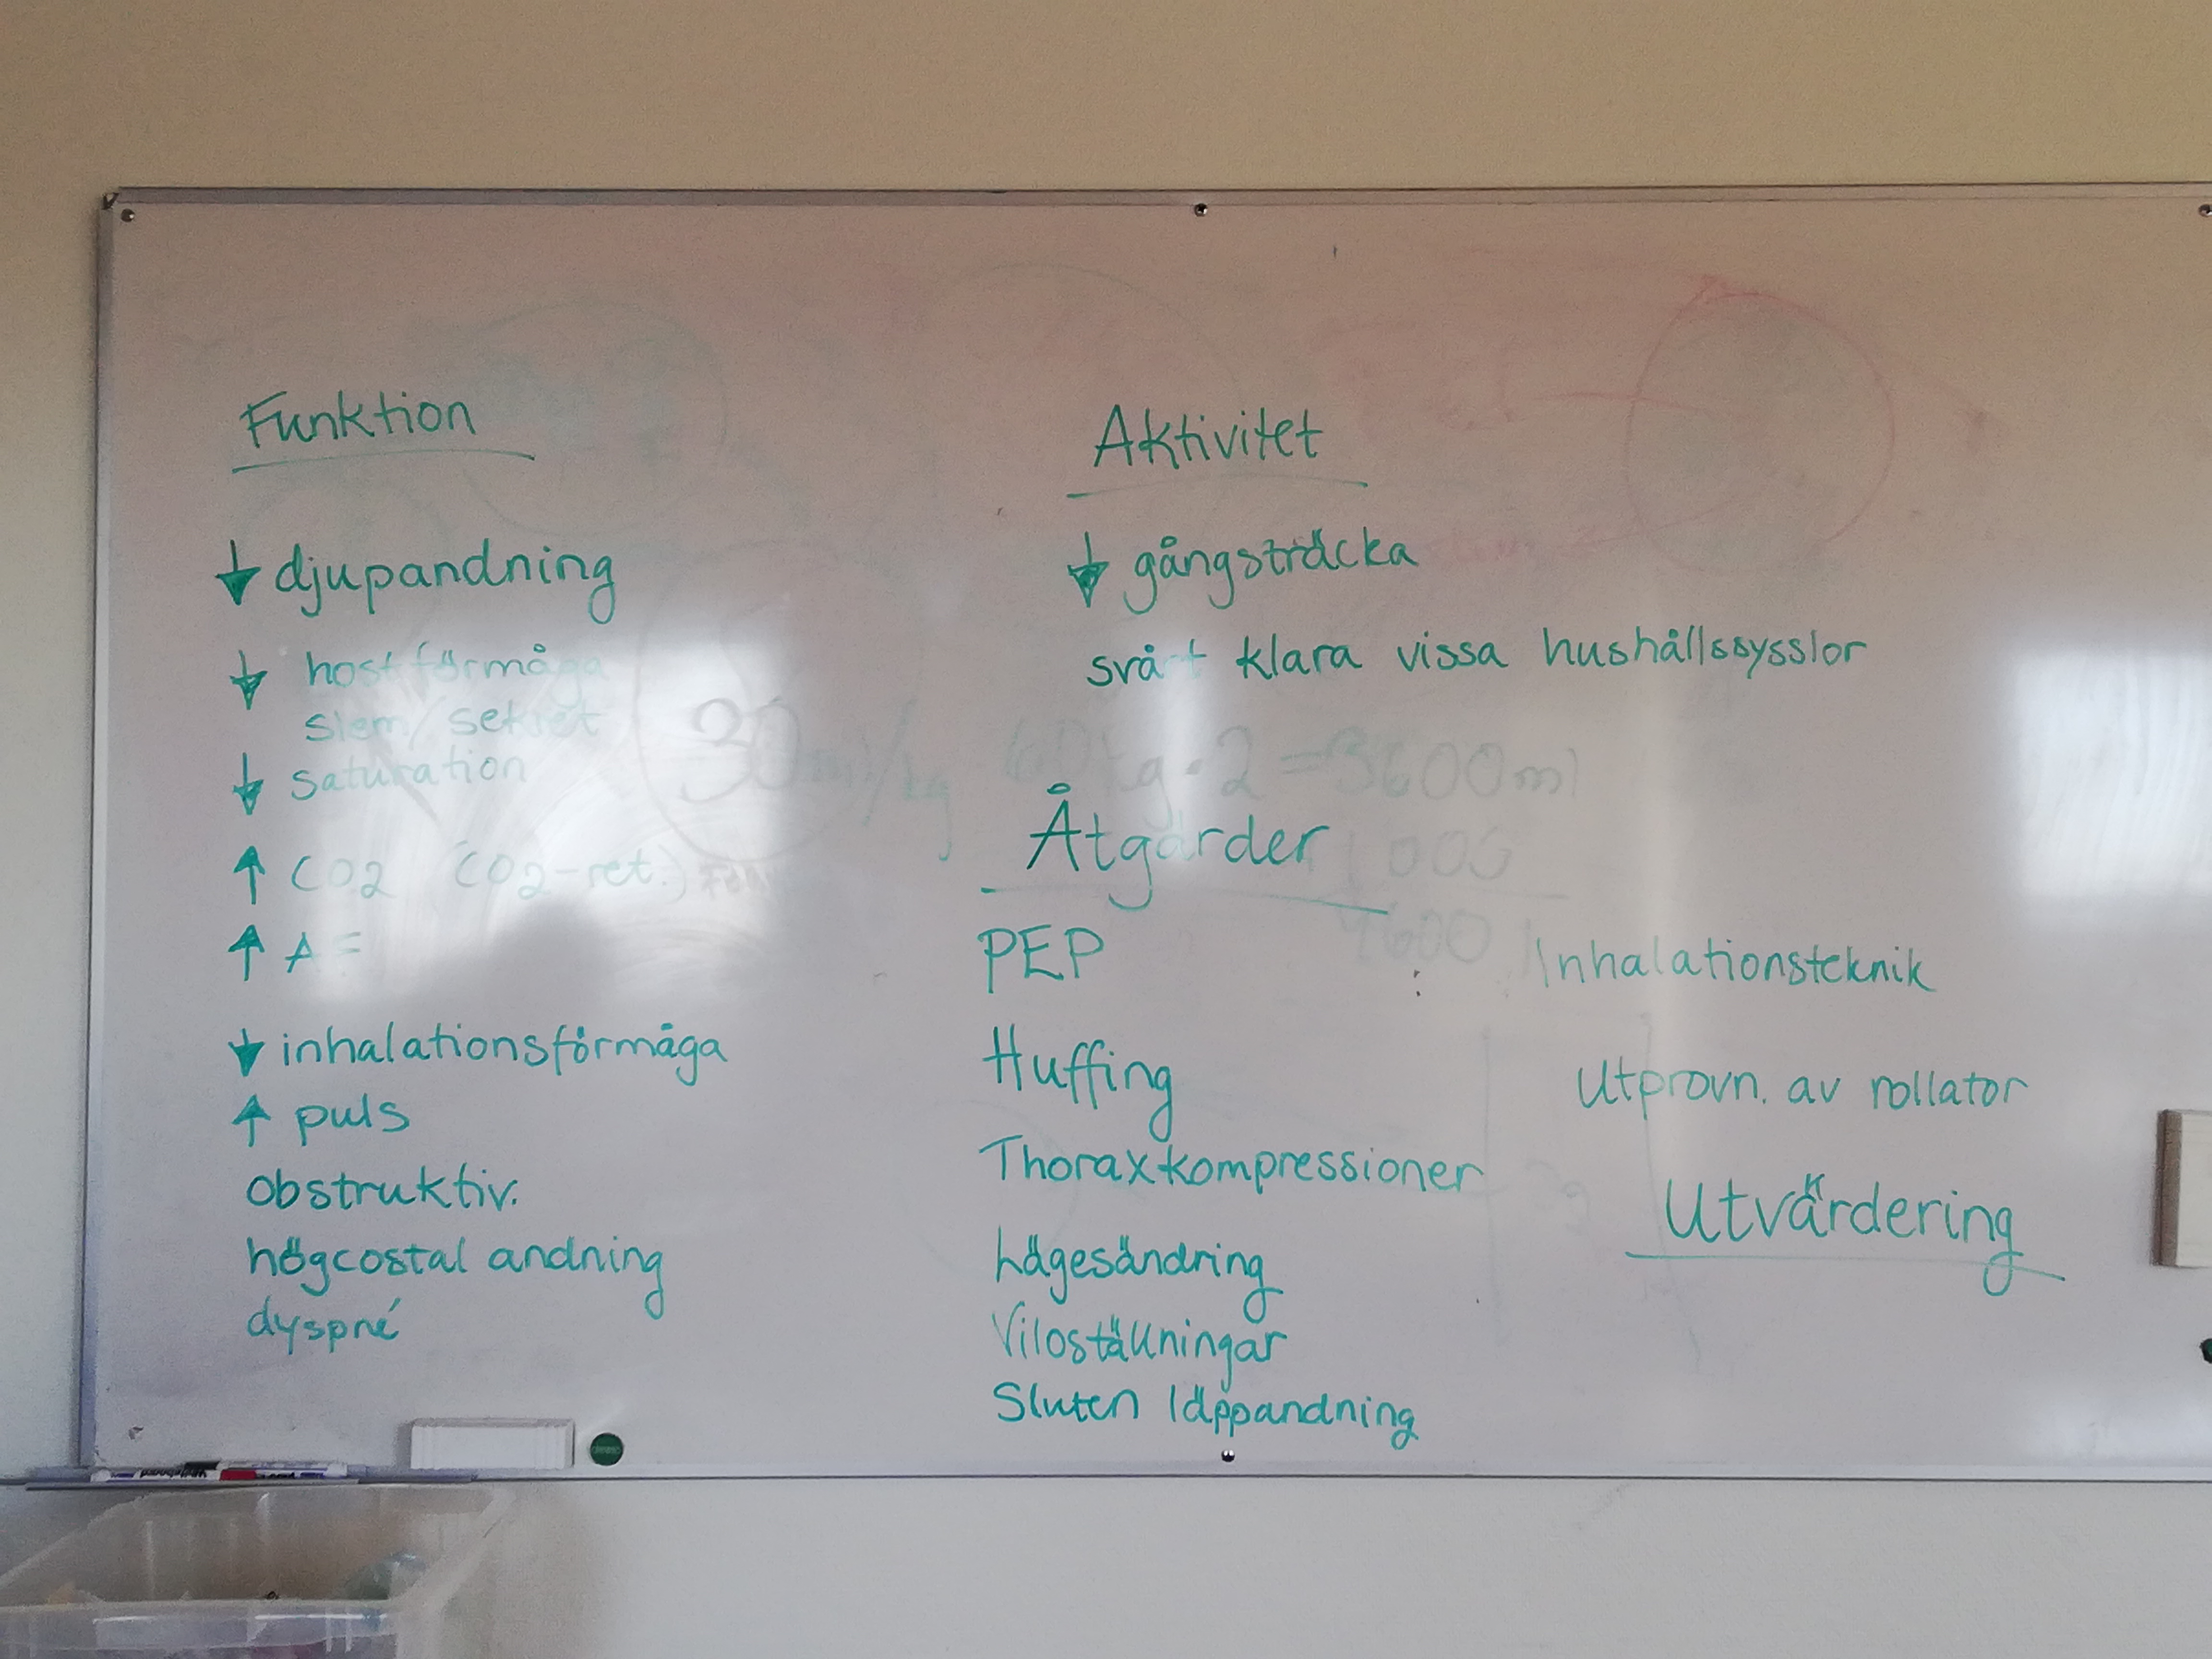 Funktion
↓ djupandning
↓ hostförmåga
slem/sekret
↓ saturation
↑ CO2 (CO2-ret.)
↑ AF
↓ inhalationsförmåga
↑ puls
obstruktiv.
högcostal andning
dyspné
Aktivitet
↓ gångsträcka
svårt klara vissa hushållssysslor
30 ml/kg 60kg·2=3600ml
1000
4600
Åtgärder
PEP
Huffing
Thoraxkompressioner
Lägesändring
Viloställningar
Sluten läppandning
Inhalationsteknik
Utprovn. av rollator
Utvärdering